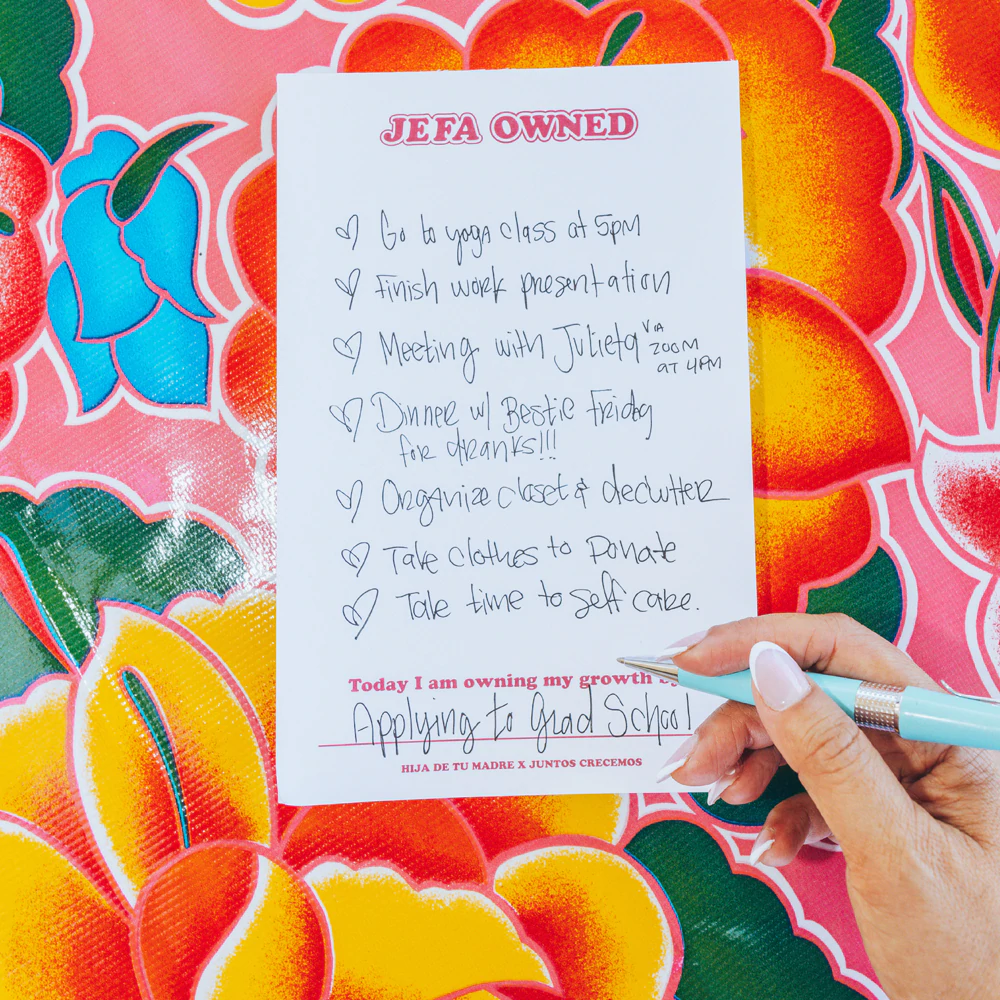 JEFA OWNED
Go to yoga class at 5pm
Finish work presentation
Meeting with Julieta VIA
ZOOM
AT 4PM
Dinner w/ Bestie Friday
for dranks!!!
Organize closet & declutter
Take clothes to Donate
Take time to self care.
Today I am owning my growth
Applying to Grad School
HIJA DE TU MADRE X JUNTOS CRECEMOS